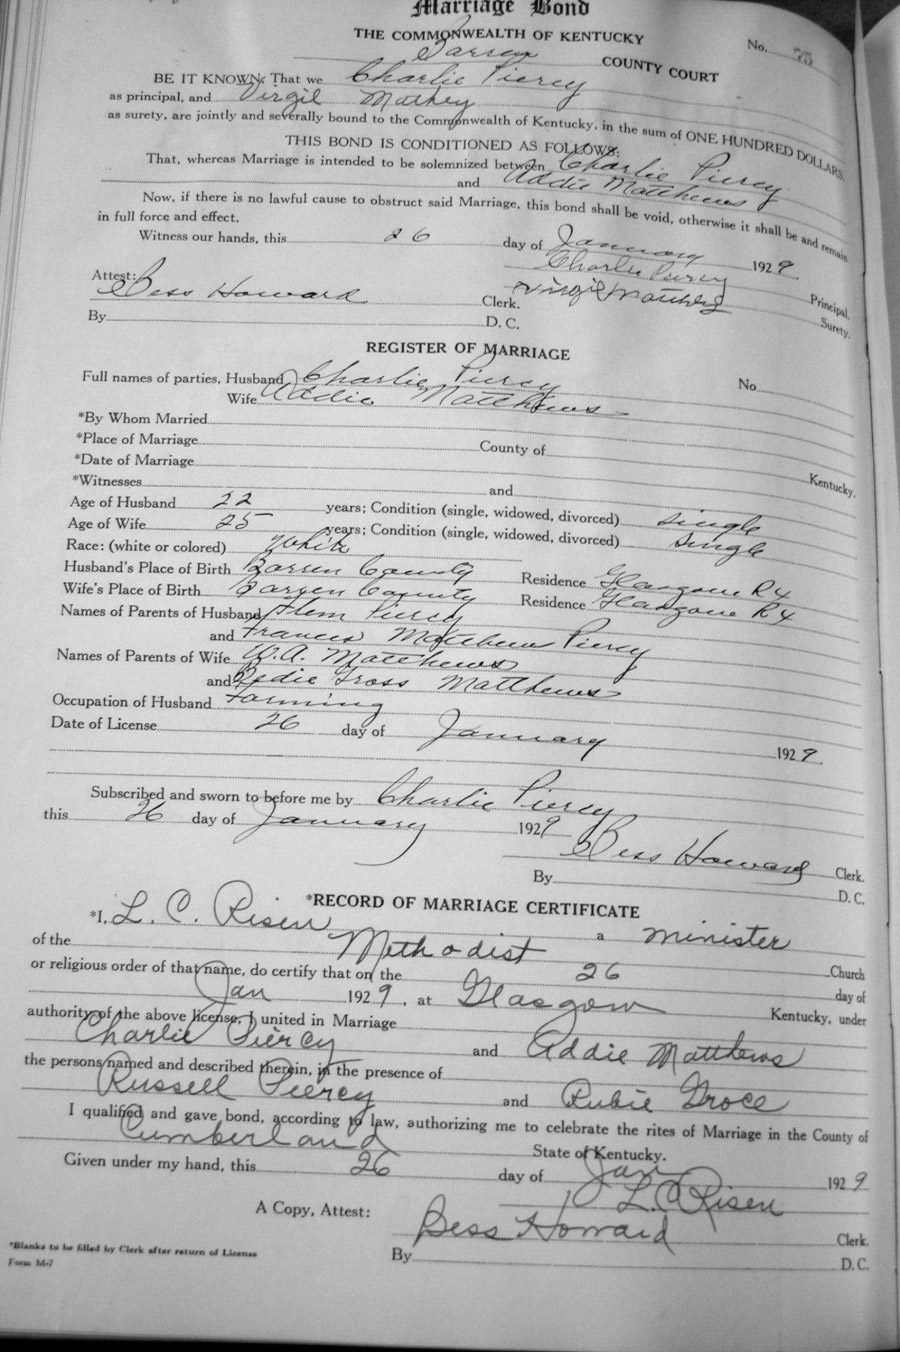 Marriage Bond
THE COMMONWEALTH OF KENTUCKY No. 75
Barren COUNTY COURT
BE IT KNOWN: That we Charlie Piercy
as principal, and Virgil Mathey
as surety, are jointly and severally bound to the Commonwealth of Kentucky, in the sum of ONE HUNDRED DOLLARS.
THIS BOND IS CONDITIONED AS FOLLOWS:
That, whereas Marriage is intended to be solemnized between Charlie Piercy
and Addie Matthews
Now, if there is no lawful cause to obstruct said Marriage, this bond shall be void, otherwise it shall be and remain
in full force and effect.
Witness our hands, this 26 day of January 1929
Charlie Piercy Principal.
Attest: Bess Howard Clerk. Virgil Surety.
By D. C.
REGISTER OF MARRIAGE
Full names of parties, Husband Charlie Piercy No.
Wife Addie Matthews
*By Whom Married
*Place of Marriage County of Kentucky.
*Date of Marriage
*Witnesses and
Age of Husband 22 years; Condition (single, widowed, divorced) single
Age of Wife 25 years; Condition (single, widowed, divorced) single
Race: (white or colored) White
Husband's Place of Birth Barren County Residence Glasgow R4
Wife's Place of Birth Barren County Residence Glasgow R4
Names of Parents of Husband Flem Piercy
and Frances Matthews Piercy
Names of Parents of Wife W. A. Matthews
and Bedie Gross Matthews
Occupation of Husband Farming
Date of License 26 day of January 1929.
Subscribed and sworn to before me by Charlie Piercy
this 26 day of January 1929
Bess Howard Clerk.
By D. C.
*RECORD OF MARRIAGE CERTIFICATE
*I, L. C. Risen a minister
of the Methodist Church
or religious order of that name, do certify that on the 26 day of
Jan 1929, at Glasgow Kentucky, under
authority of the above license, I united in Marriage
Charlie Piercy and Addie Matthews
the persons named and described therein, in the presence of
Russell Piercy and Rubie Groce
I qualified and gave bond, according to law, authorizing me to celebrate the rites of Marriage in the County of
Cumberland State of Kentucky.
Given under my hand, this 26 day of Jan 1929
L. C. Risen
A Copy, Attest: Bess Howard Clerk.
By D. C.
*Blanks to be filled by Clerk after return of License
Form M-7